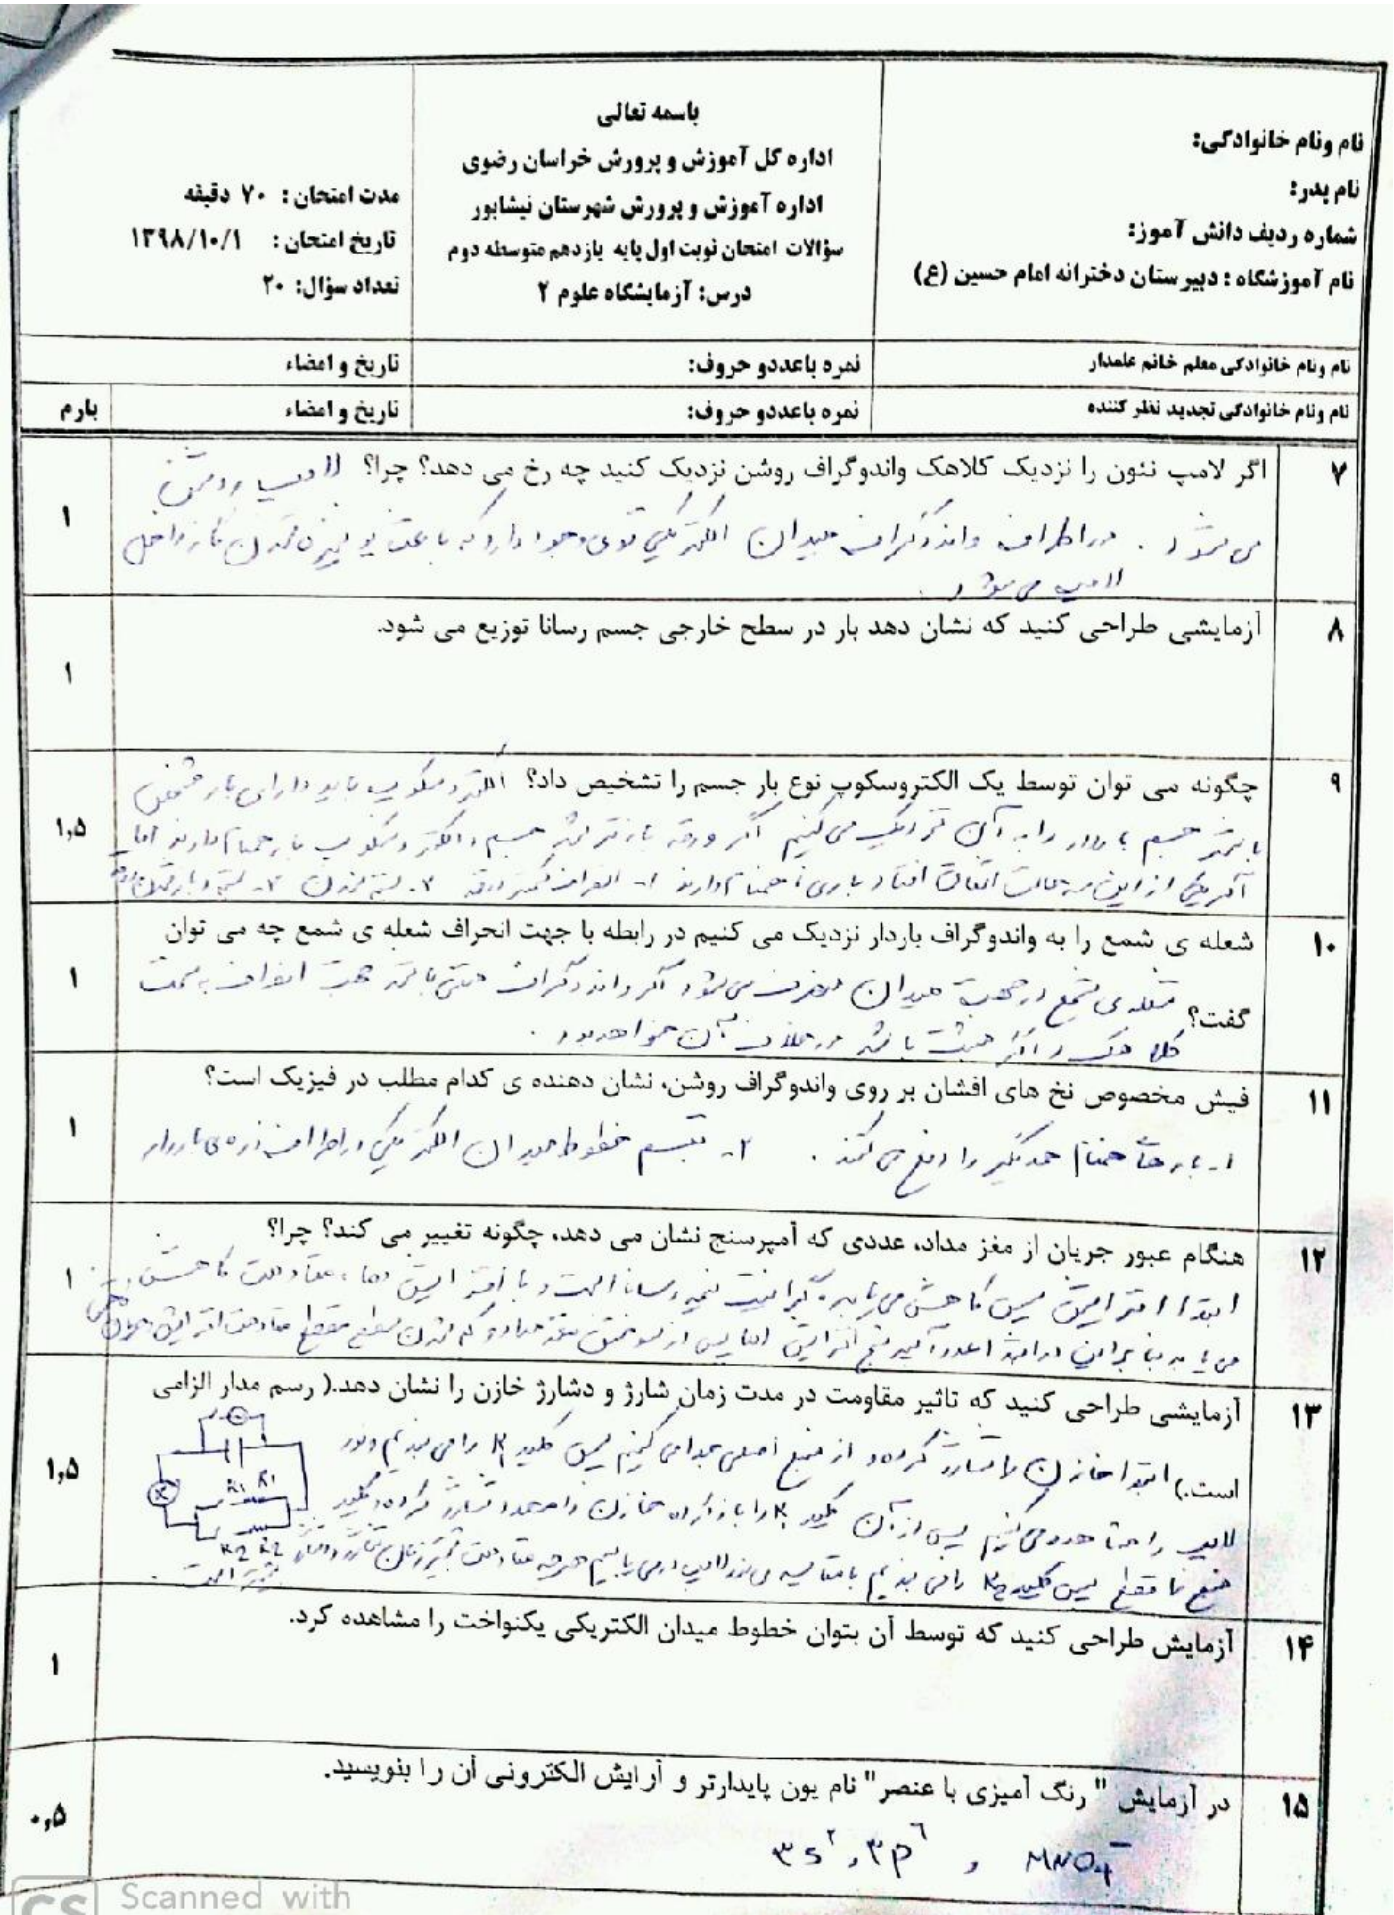 باسمه تعالی
اداره کل آموزش و پرورش خراسان رضوی
اداره آموزش و پرورش شهرستان نیشابور
سؤالات امتحان نوبت اول پایه یازدهم متوسطه دوم
درس: آزمایشگاه علوم ۲
نام ونام خانوادگی:
نام پدر:
شماره ردیف دانش آموز:
نام آموزشگاه : دبیرستان دخترانه امام حسین (ع)
مدت امتحان : ۷۰ دقیقه
تاریخ امتحان : ۱۳۹۸/۱۰/۱
تعداد سؤال: ۲۰
نام ونام خانوادگی معلم خانم علمدار نمره باعددو حروف: تاریخ و امضاء
نام ونام خانوادگی تجدید نظر کننده نمره باعددو حروف: تاریخ و امضاء بارم
۷ اگر لامپ نئون را نزدیک کلاهک واندوگراف روشن نزدیک کنید چه رخ می دهد؟ چرا؟ لامپ روشن
می شود . در اطراف واندوگراف میدان الکتریکی قوی وجود دارد که باعث یونیزه شدن گاز داخل ۱
لامپ می شود .
۸ آزمایشی طراحی کنید که نشان دهد بار در سطح خارجی جسم رسانا توزیع می شود.
۱
۹ چگونه می توان توسط یک الکتروسکوپ نوع بار جسم را تشخیص داد؟ الکتروسکوپ باید دارای بار مشخص
باشد جسم باردار را به آن نزدیک می کنیم اگر ورقه بازتر شد جسم و الکتروسکوپ بار همنام دارند اما ۱,۵
اگر یکی از این سه حالت اتفاق افتاد بار ناهمنام دارند ۱- انحراف کمتر ورقه ۲- بسته شدن ۳- بسته و باز شدن
۱۰ شعله ی شمع را به واندوگراف باردار نزدیک می کنیم در رابطه با جهت انحراف شعله ی شمع چه می توان
گفت؟ شعله ی شمع در جهت میدان منحرف می شود اگر واندوگراف منفی باشد جهت انحراف به سمت ۱
کلاهک و اگر مثبت باشد در خلاف آن خواهد بود .
۱۱ فیش مخصوص نخ های افشان بر روی واندوگراف روشن، نشان دهنده ی کدام مطلب در فیزیک است؟
۱- بارهای همنام همدیگر را دفع می کنند . ۲- تجسم خطوط میدان الکتریکی در اطراف ذره ی باردار ۱
۱۲ هنگام عبور جریان از مغز مداد، عددی که آمپرسنج نشان می دهد، چگونه تغییر می کند؟ چرا؟
ابتدا افزایش سپس کاهش می یابد. گرافیت نیمه رسانا است و با افزایش دما، مقاومت کاهش ۱
می یابد بنابراین در ابتدا عدد آمپرسنج افزایش اما پس از سوختن مغز مداد و کم شدن سطح مقطع مقاومت افزایش
۱۳ آزمایشی طراحی کنید که تاثیر مقاومت در مدت زمان شارژ و دشارژ خازن را نشان دهد.( رسم مدار الزامی
است.) ابتدا خازن را شارژ کرده و از منبع اصلی جدا می کنیم سپس کلید K₁ را می بندیم و نور ۱,۵
لامپ را مشاهده می کنیم پس از آن کلید K₁ را باز کرده خازن را مجدد شارژ کرده و کلید
منبع را قطع سپس کلید K₂ را می بندیم با مقایسه ی نور لامپ در می یابیم هر چه مقاومت بیشتر زمان شارژ و دشارژ بیشتر است .
K1 R1
K2 R2
۱۴ آزمایش طراحی کنید که توسط آن بتوان خطوط میدان الکتریکی یکنواخت را مشاهده کرد.
۱
۱۵ در آزمایش " رنگ آمیزی با عنصر" نام یون پایدارتر و آرایش الکترونی آن را بنویسید.
۰,۵
MNO₄⁻ , ۳s² , ۳p⁶
CS Scanned with